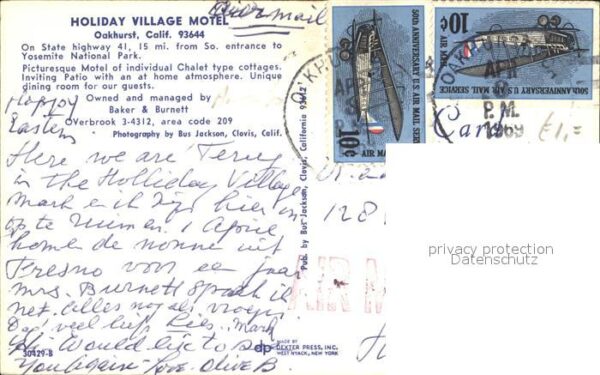 HOLIDAY VILLAGE MOTEL
Oakhurst, Calif. 93644
On State highway 41, 15 mi. from So. entrance to
Yosemite National Park.
Picturesque Motel of individual Chalet type cottages.
Inviting Patio with an at home atmosphere. Unique
dining room for our guests.
Owned and managed by
Baker & Burnett
OVerbrook 3-4312, area code 209
Photography by Bus Jackson, Clovis, Calif.
Air mail
Happy
Eastern
Here we are Terry
in the Holliday Village
Mark en ik zijn hier
1 April
komen de nonne uit
Fresno voor een jaar
Mrs. Burnett
net alles nog als vroeger
Mark
would like to see
You again Love Olive B.
30429-B
Pub. by Bus Jackson, Clovis, California 93612
dp
MADE BY
DEXTER PRESS, INC.
WEST NYACK, NEW YORK
50TH ANNIVERSARY U.S. AIR MAIL SERVICE
10¢
AIR MAIL
10¢
AIR MAIL
50TH ANNIVERSARY U.S. AIR MAIL SERVICE
OAKHURST
APR
APR
P.M.
1969
£1,=
128
AIR M
privacy protection
Datenschutz